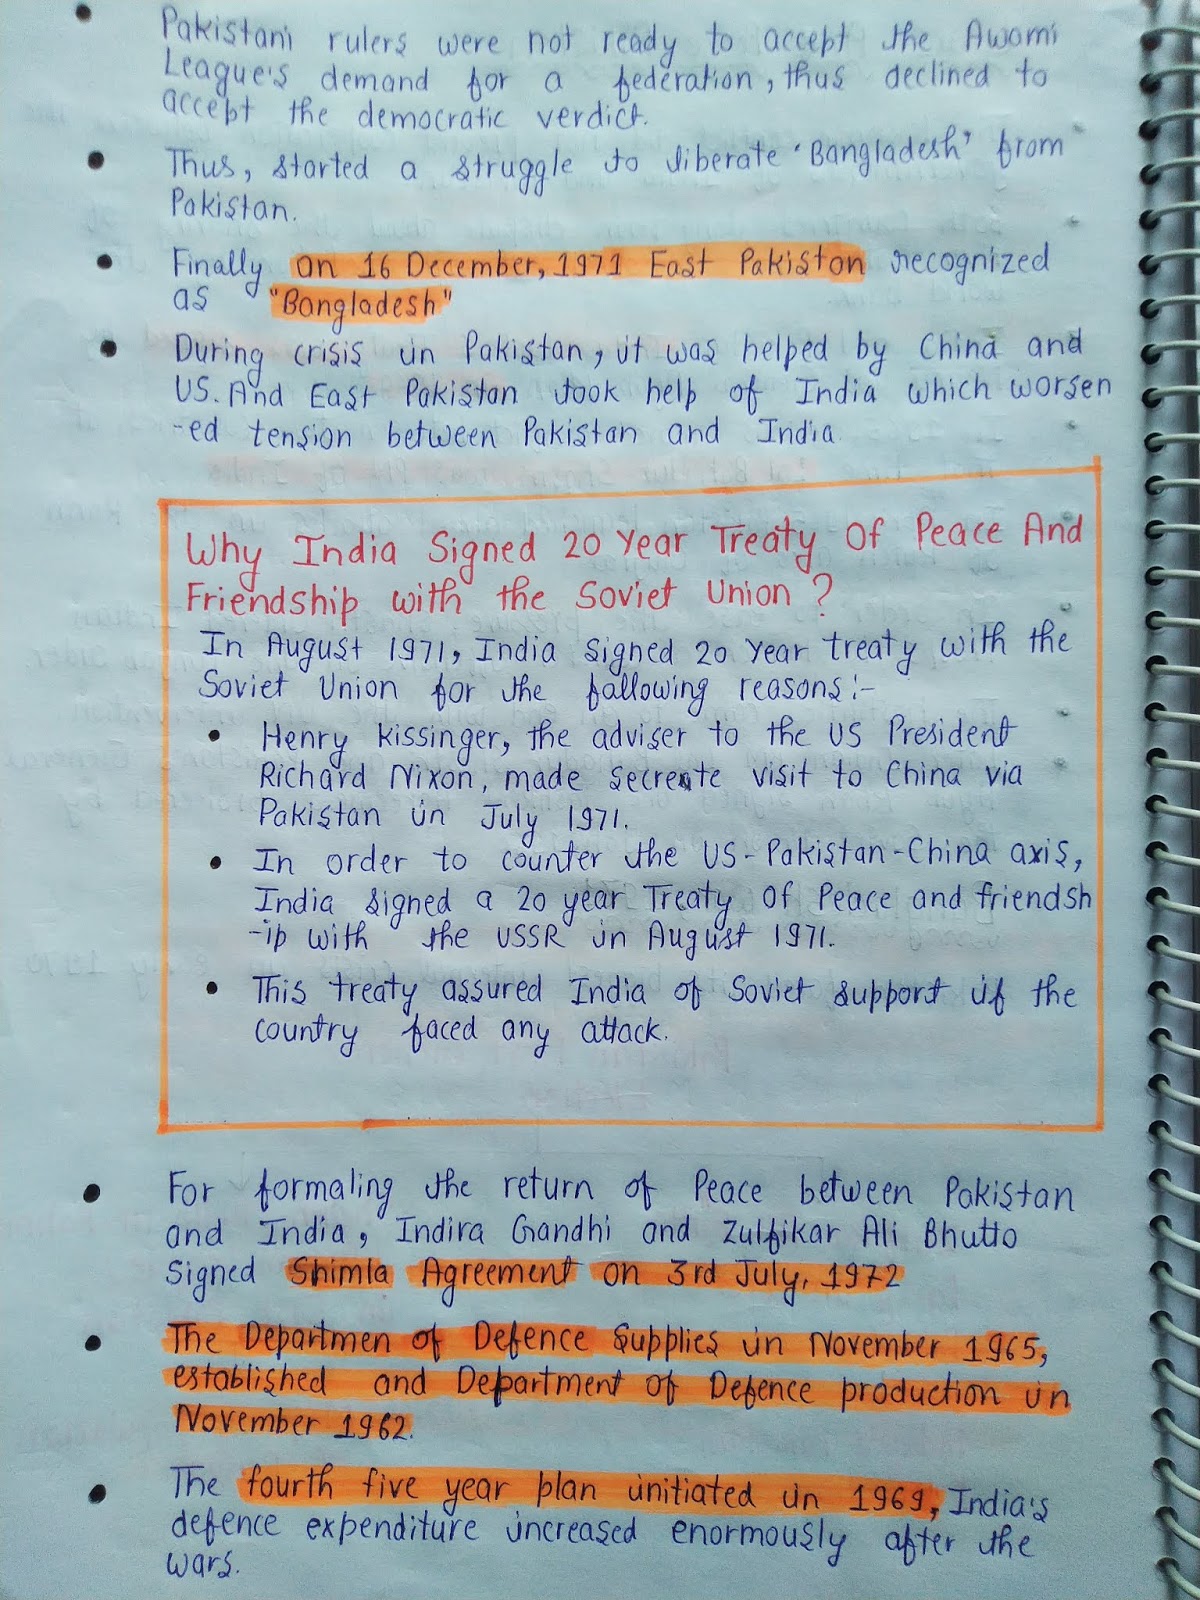 Pakistani rulers were not ready to accept the Awami
League's demand for a federation, thus declined to
accept the democratic verdict.
Thus, started a struggle to liberate 'Bangladesh' from
Pakistan.
Finally on 16 December, 1971 East Pakistan recognized
as "Bangladesh"
During crisis in Pakistan, it was helped by China and
US. And East Pakistan took help of India which worsen
-ed tension between Pakistan and India
Why India Signed 20 Year Treaty Of Peace And
Friendship with the Soviet Union ?
In August 1971, India signed 20 Year treaty with the
Soviet Union for the fallowing reasons:-
Henry Kissinger, the adviser to the US President
Richard Nixon, made secrete visit to China via
Pakistan in July 1971.
In order to counter the US-Pakistan-China axis,
India signed a 20 year Treaty Of Peace and friendsh
-ip with the USSR in August 1971.
This treaty assured India of Soviet support if the
country faced any attack.
For formaling the return of Peace between Pakistan
and India, Indira Gandhi and Zulfikar Ali Bhutto
Signed Shimla Agreement on 3rd July, 1972
The Departmen of Defence Supplies in November 1965,
established and Department of Defence production in
November 1962.
The fourth five year plan initiated in 1969, India's
defence expenditure increased enormously after the
wars.